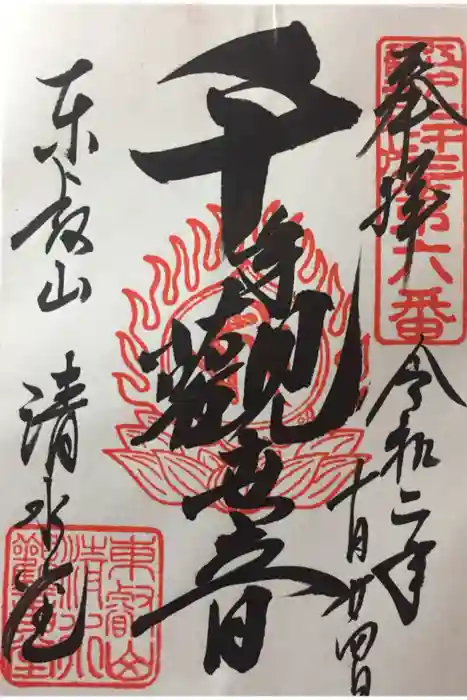 奉拝
第六番
令和二年
十月廿四日
千手觀世音
東叡山 清水堂
東叡山
清水
觀音堂